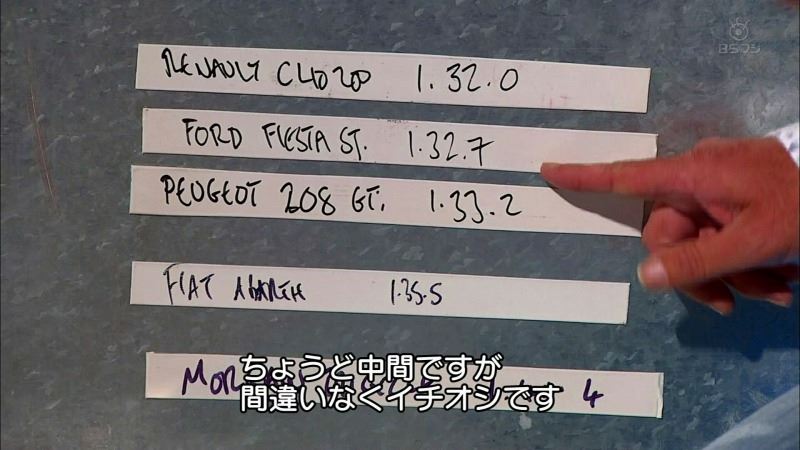 BSフジ
RENAULT CLIO 200 1.32.0
FORD FIESTA ST. 1.32.7
PEUGEOT 208 GT. 1.33.2
FIAT ABARTH 1.35.5
4
ちょうど中間ですが
間違いなくイチオシです